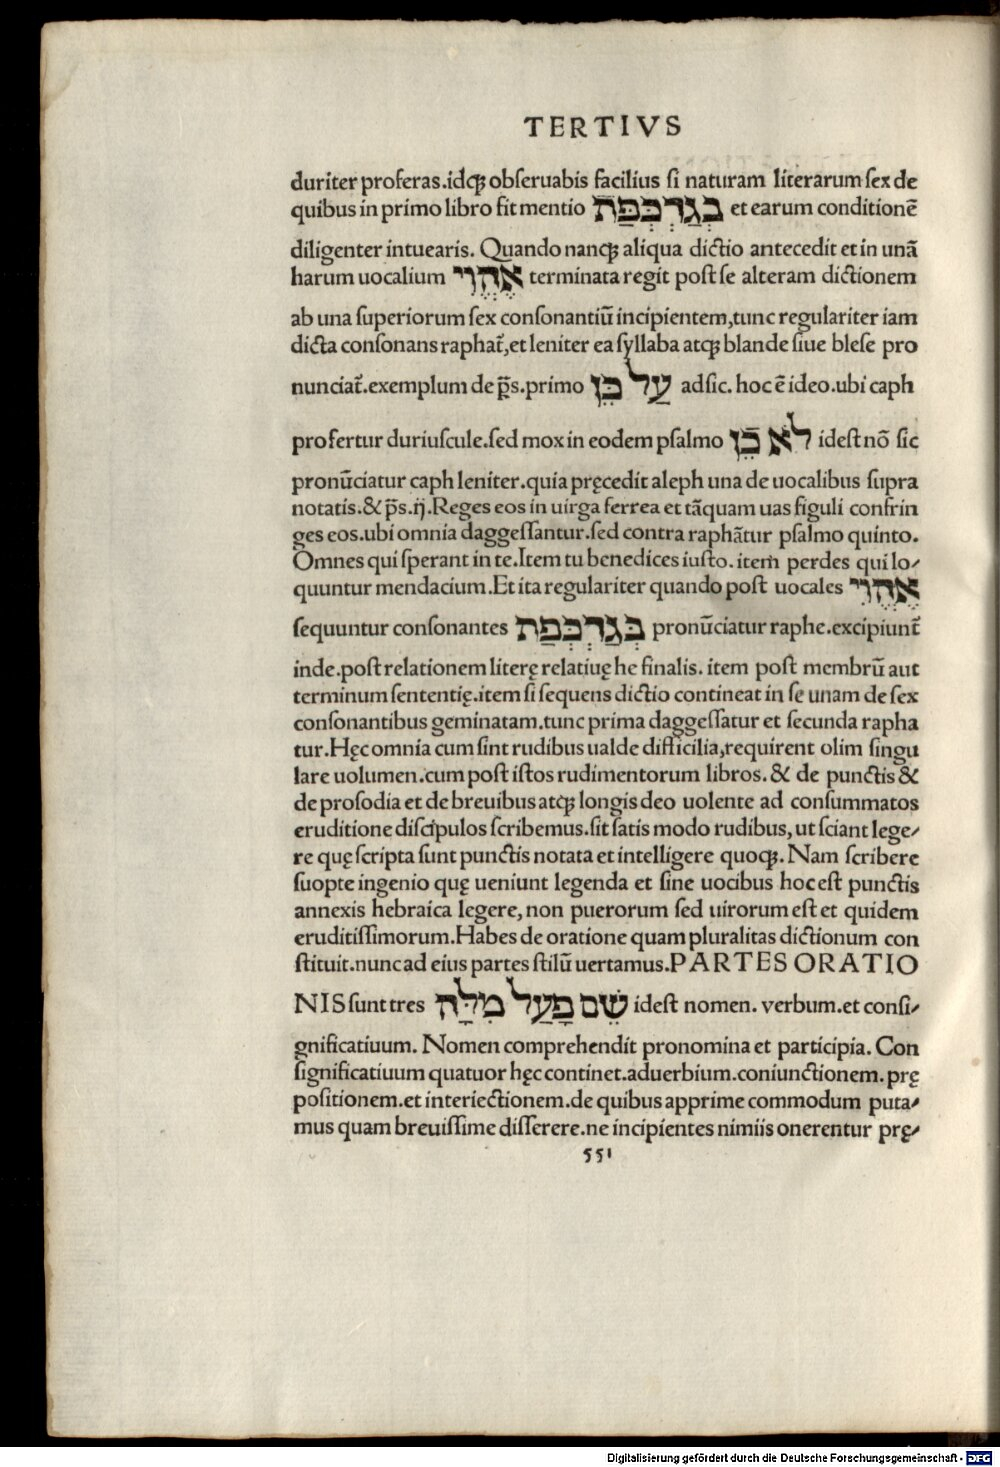 TERTIVS
duriter proferas.idq̃ obſeruabis facilius ſi naturam literarum ſex de
quibus in primo libro fit mentio בְּגַדְכְּפַּת et earum conditionẽ
diligenter intuearis. Quando nanq̃ aliqua dictio antecedit et in unã
harum uocalium אֱהֱוִי terminata regit poſt ſe alteram dictionem
ab una ſuperiorum ſex conſonantiũ incipientem,tunc regulariter iam
dicta conſonans raphat̃,et leniter ea ſyllaba atq̃ blande ſiue bleſe pro
nunciat̃.exemplum de p̃s.primo עַל כֵּן adſic. hoc ẽ ideo.ubi caph
profertur duriuscule.ſed mox in eodem pſalmo לֹא כֵֿן idest nõ ſic
pronũciatur caph leniter.quia pręcedit aleph una de uocalibus ſupra
notatis.& p̃s.ij.Reges eos in uirga ferrea et tãquam uas figuli confrin
ges eos.ubi omnia daggeſſantur.ſed contra raphãtur pſalmo quinto.
Omnes qui ſperant in te.Item tu benedices iuſto. item̃ perdes qui lo⸗
quuntur mendacium.Et ita regulariter quando poſt uocales אֱהֱוִי
ſequuntur conſonantes בְּגַדְכְּפַת pronũciatur raphe.excipiunt̃
inde.poſt relationem literę relatiuę he finalis. item poſt membrũ aut
terminum ſententię.item ſi ſequens dictio contineat in ſe unam de ſex
conſonantibus geminatam.tunc prima daggeſſatur et ſecunda rapha
tur.Hęc omnia cum ſint rudibus ualde difficilia,requirent olim ſingu
lare uolumen.cum poſt iſtos rudimentorum libros. & de punctis &
de proſodia et de breuibus atq̃ longis deo uolente ad conſummatos
eruditione diſcipulos ſcribemus.ſit ſatis modo rudibus, ut ſciant lege⸗
re quę ſcripta ſunt punctis notata et intelligere quoq̃. Nam ſcribere
ſuopte ingenio quę ueniunt legenda et ſine uocibus hoc eſt punctis
annexis hebraica legere, non puerorum ſed uirorum eſt et quidem
eruditiſſimorum.Habes de oratione quam pluralitas dictionum con
ſtituit.nunc ad eius partes ſtilũ uertamus.PARTES ORATIO
NIS ſunt tres שֵׁם פָּעַל מִלָּה idest nomen. verbum.et conſi⸗
gnificatiuum. Nomen comprehendit pronomina et participia. Con
ſignificatiuum quatuor hęc continet.aduerbium.coniunctionem. prę
poſitionem.et interiectionem.de quibus apprime commodum puta⸗
mus quam breuiſſime diſſerere.ne incipientes nimiis onerentur prę⸗
551
Digitalisierung gefördert durch die Deutsche Forschungsgemeinschaft - DFG